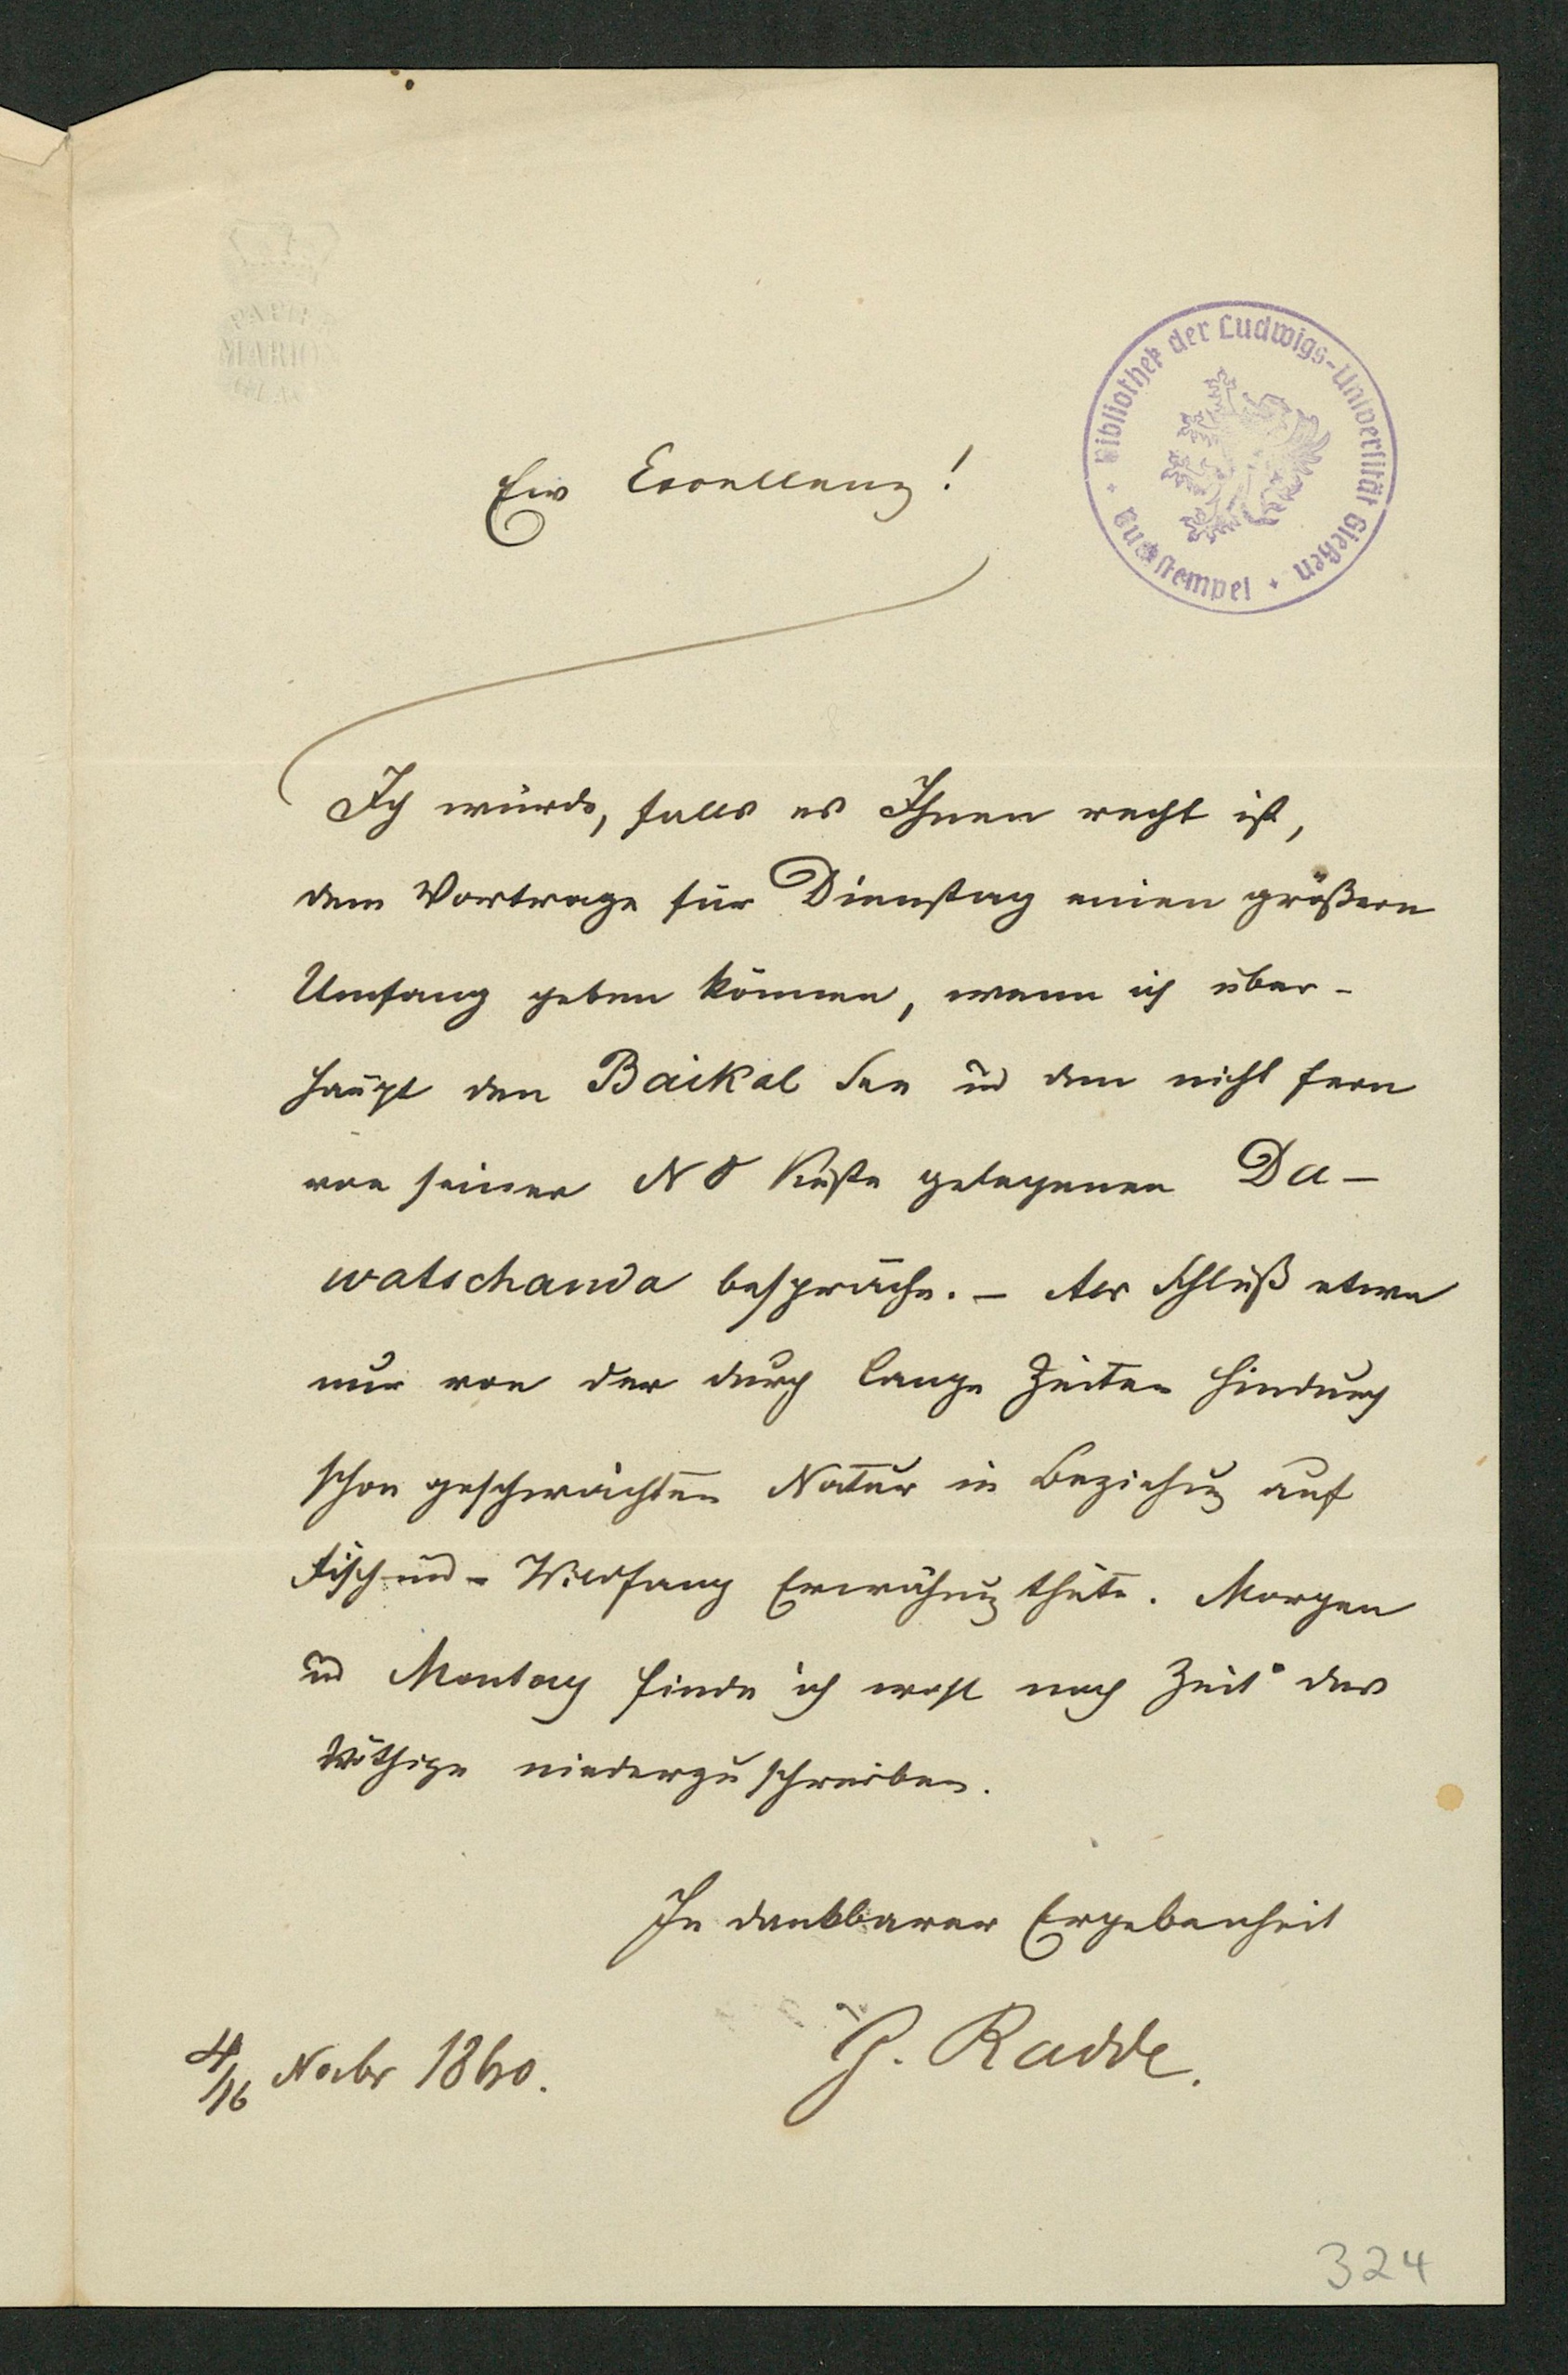 Bibliothek der Ludwigs-Universität Gießen
Buchstempel
Ew Excellenz!
Ich würde, falls es Ihnen recht ist,
dem Vortrage für Dienstag einen größern
Umfang geben können, wenn ich über-
haupt den Baikal See und den nicht fern
von seiner NO Küste gelegenen Da-
watschanda bespräche. – Am Schluß etwa
nur von der durch lange Zeiten hindurch
schon geschwächten Natur in Beziehung auf
Fisch und - Wildfang Erwähnung thäte. Morgen
und Montag finde ich wohl noch Zeit das
Nöthige niederzuschreiben.
In dankbarer Ergebenheit
G. Radde.
4/16 Nobr 1860.
324